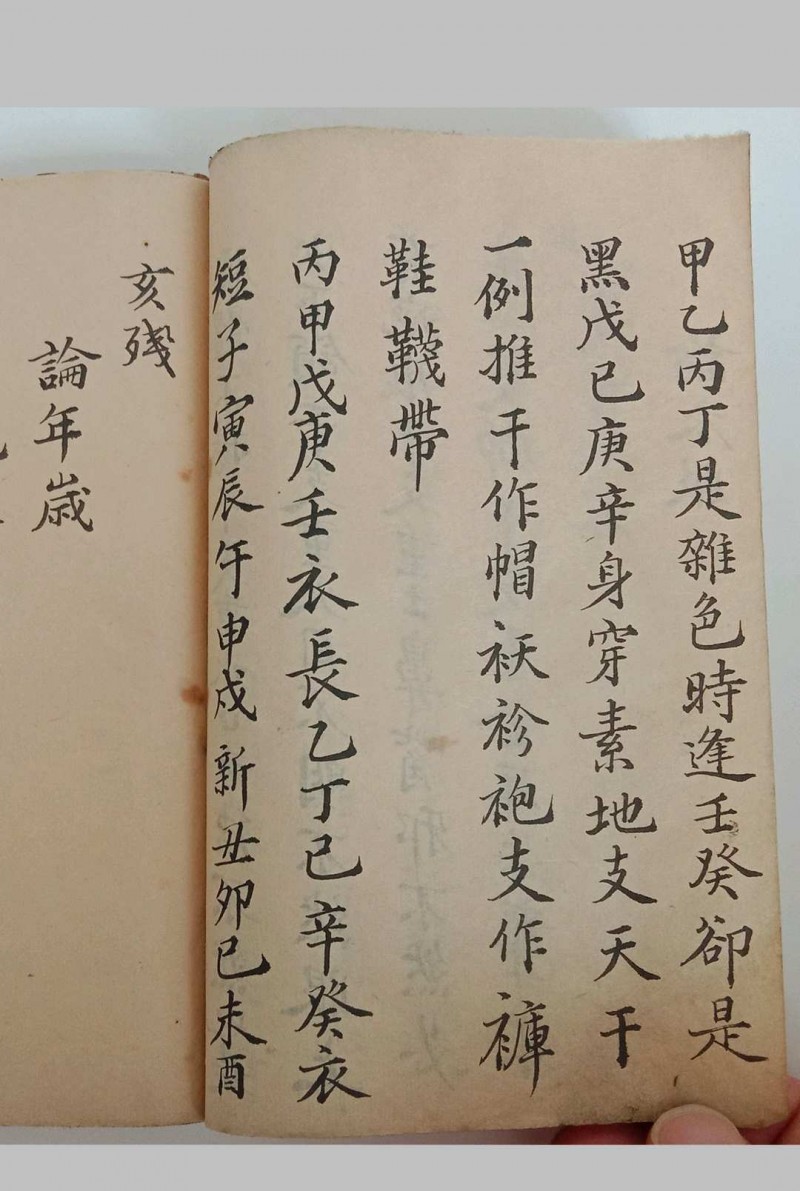 甲乙丙丁是雜色時逢壬癸卻是
黑戊已庚辛身穿素地支天干
一例推干作帽袄衫袍支作褲
鞋韈帶
丙甲戊庚壬衣長乙丁已辛癸衣
短子寅辰午申戍新丑卯巳未酉
亥殘
論年歲